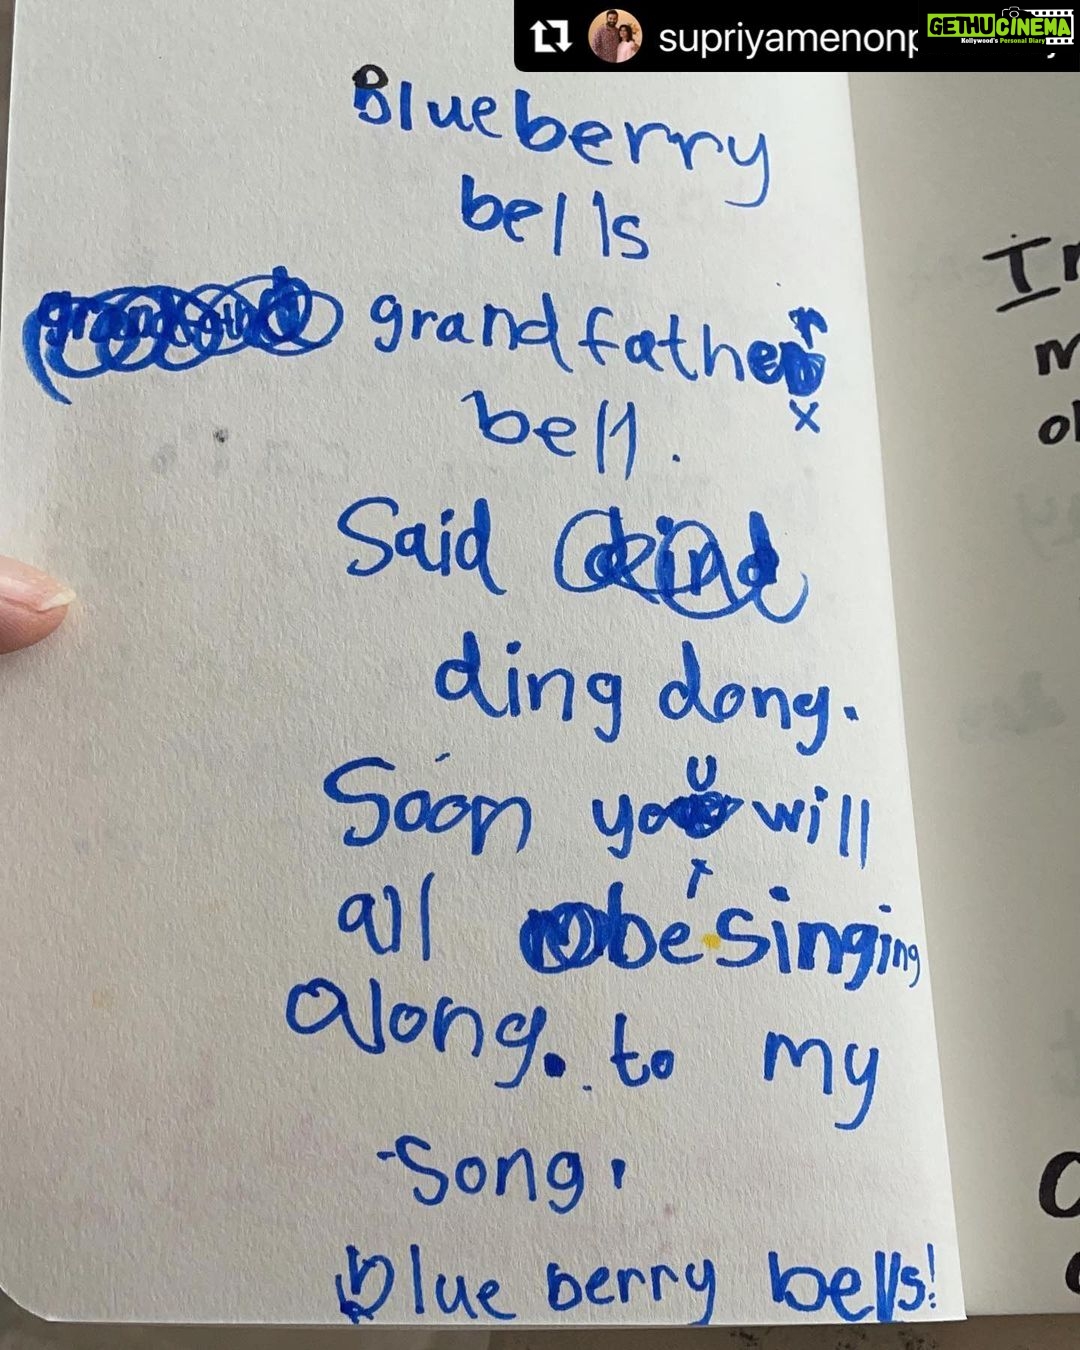 supriyamenonp
GETHUCINEMA
Kollywood's Personal Diary
Blueberry
bells
grandfather
bell.
Said
ding dong.
Soon you will
all be singing
along. to my
song.
Blue berry bells!